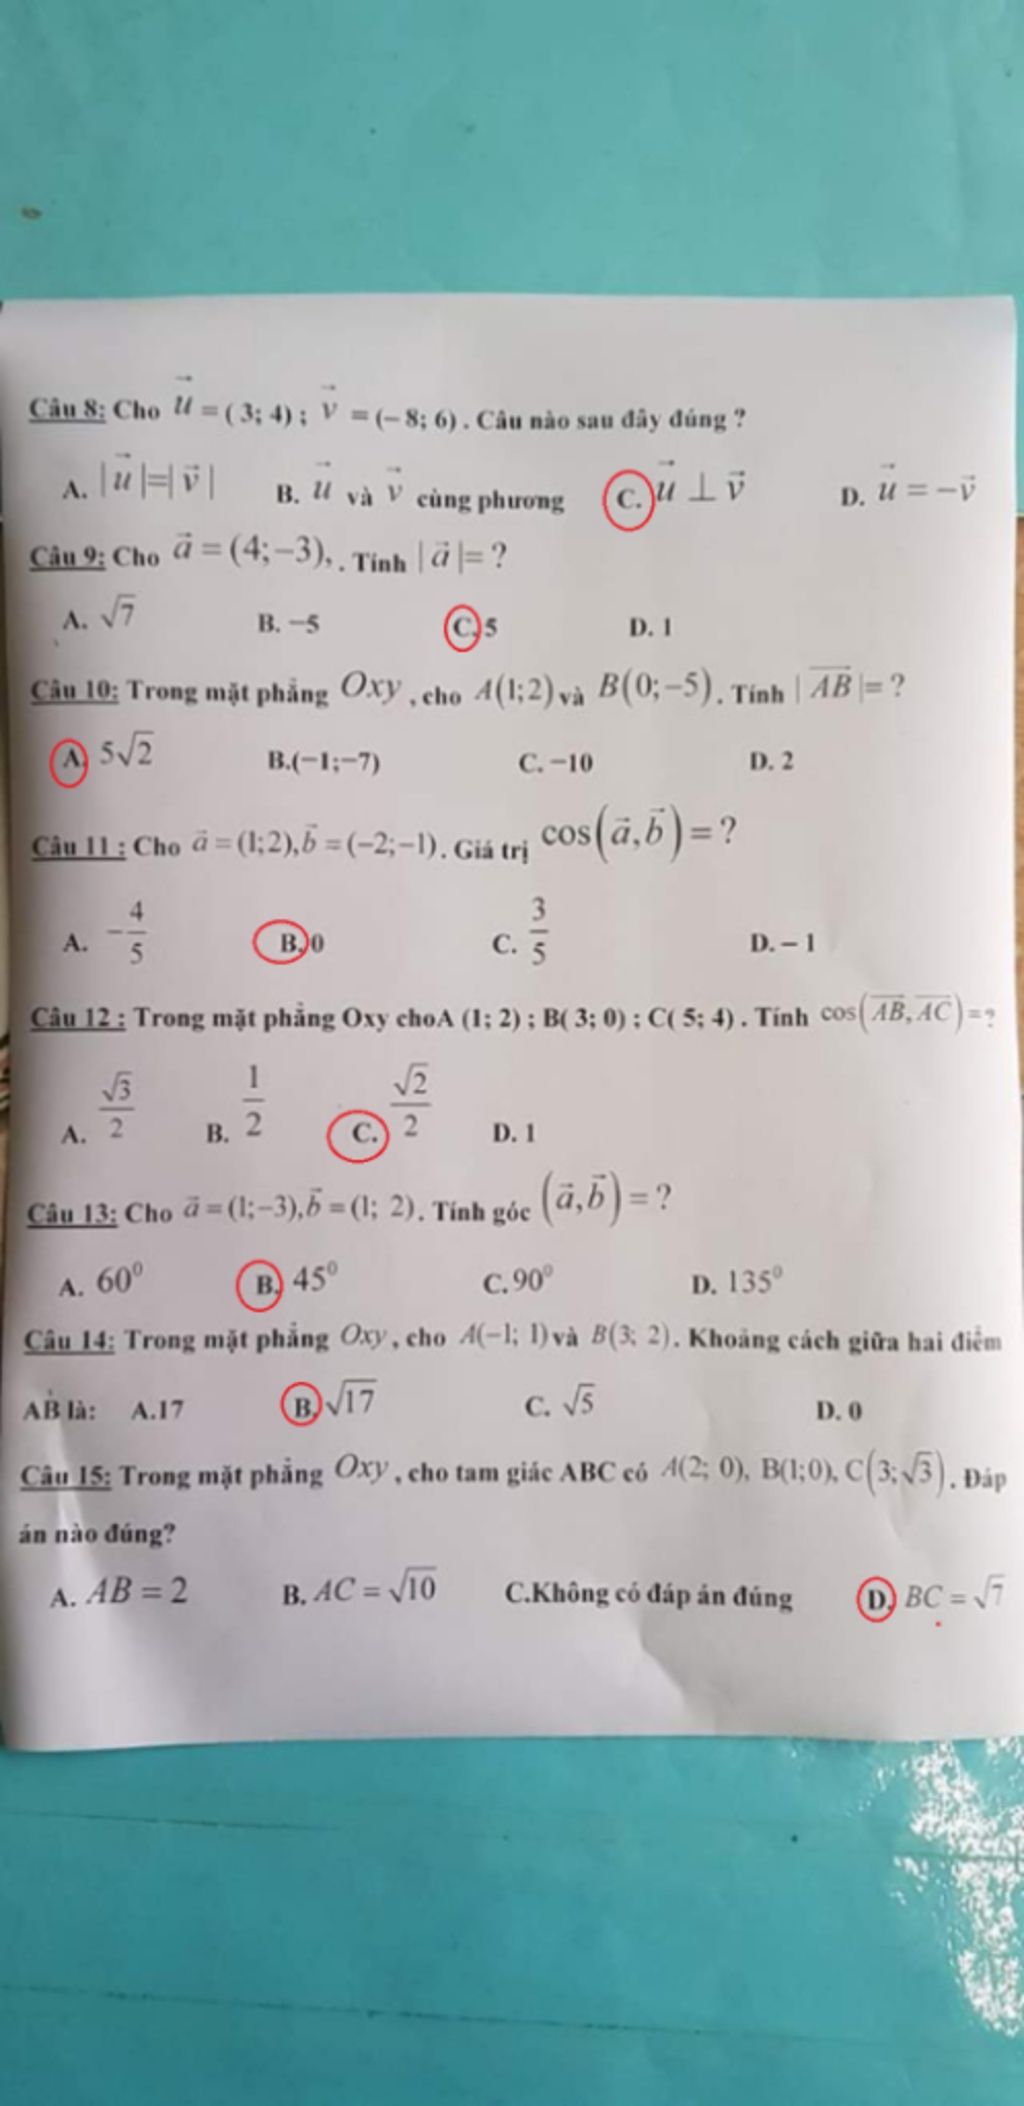 Câu 8: Cho \vec{u} = (3; 4) ; \vec{v} = (– 8; 6) . Câu nào sau đây đúng ?
A. |\vec{u}|=|\vec{v}| B. \vec{u} và \vec{v} cùng phương C. \vec{u} ⊥ \vec{v} D. \vec{u} = –\vec{v}
Câu 9: Cho \vec{a} = (4;–3), . Tính |\vec{a}|= ?
A. √7 B. –5 C. 5 D. 1
Câu 10: Trong mặt phẳng Oxy , cho A(1;2) và B(0;–5) . Tính |\overrightarrow{AB}|= ?
A. 5√2 B.(–1;–7) C. –10 D. 2
Câu 11 : Cho \vec{a} = (1;2),\vec{b} = (–2;–1) . Giá trị cos(\vec{a},\vec{b}) = ?
A. –4/5 B. 0 C. 3/5 D. – 1
Câu 12 : Trong mặt phẳng Oxy choA (1; 2) ; B( 3; 0) ; C( 5; 4) . Tính cos(\overrightarrow{AB},\overrightarrow{AC}) = ?
A. √3/2 B. 1/2 C. √2/2 D. 1
Câu 13: Cho \vec{a} = (1;–3),\vec{b} = (1; 2) . Tính góc (\vec{a},\vec{b}) = ?
A. 60⁰ B. 45⁰ C. 90⁰ D. 135⁰
Câu 14: Trong mặt phẳng Oxy , cho A(–1; 1) và B(3; 2) . Khoảng cách giữa hai điểm
AB là: A.17 B. √17 C. √5 D. 0
Câu 15: Trong mặt phẳng Oxy , cho tam giác ABC có A(2; 0), B(1;0), C(3;√3) . Đáp
án nào đúng?
A. AB = 2 B. AC = √10 C.Không có đáp án đúng D. BC = √7